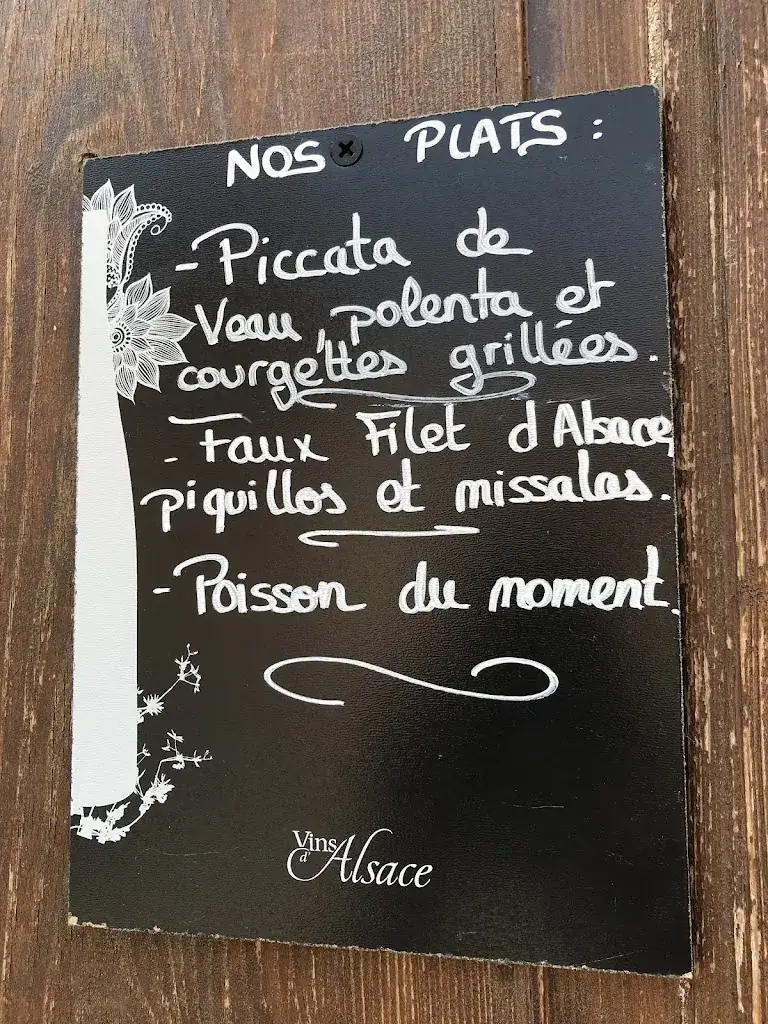 NOS PLATS :
- Piccata de
Veau, polenta et
courgettes grillées.
- Faux Filet d'Alsace,
piquillos et missalas.
- Poisson du moment.
Vins
d'Alsace